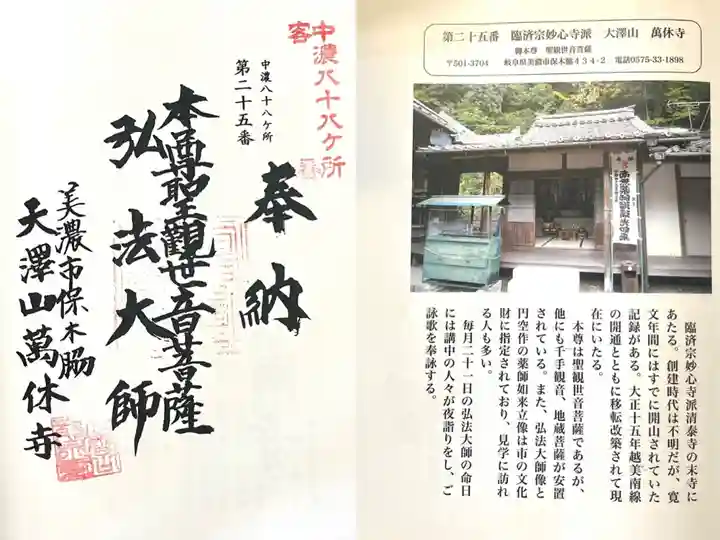 中濃八十八ケ所
客
中濃八十八ケ所
第二十五番
奉納
本尊聖觀世音菩薩
弘法大師
美濃市保木脇
天澤山萬休寺
第二十五番　臨済宗妙心寺派　大澤山　萬休寺
御本尊　聖観世音菩薩
〒501-3704　岐阜県美濃市保木脇４３４-２　電話0575-33-1898
臨済宗妙心寺派清泰寺の末寺に
あたる。創建時代は不明だが、寛
文年間にはすでに開山されていた
記録がある。大正十五年越美南線
の開通とともに移転改築されて現
在にいたる。
本尊は聖観世音菩薩であるが、
他にも千手観音、地蔵菩薩が安置
されている。また、弘法大師像と
円空作の薬師如来立像は市の文化
財に指定されており、見学に訪れ
る人も多い。
毎月二十一日の弘法大師の命日
には講中の人々が夜詣りをし、ご
詠歌を奉詠する。